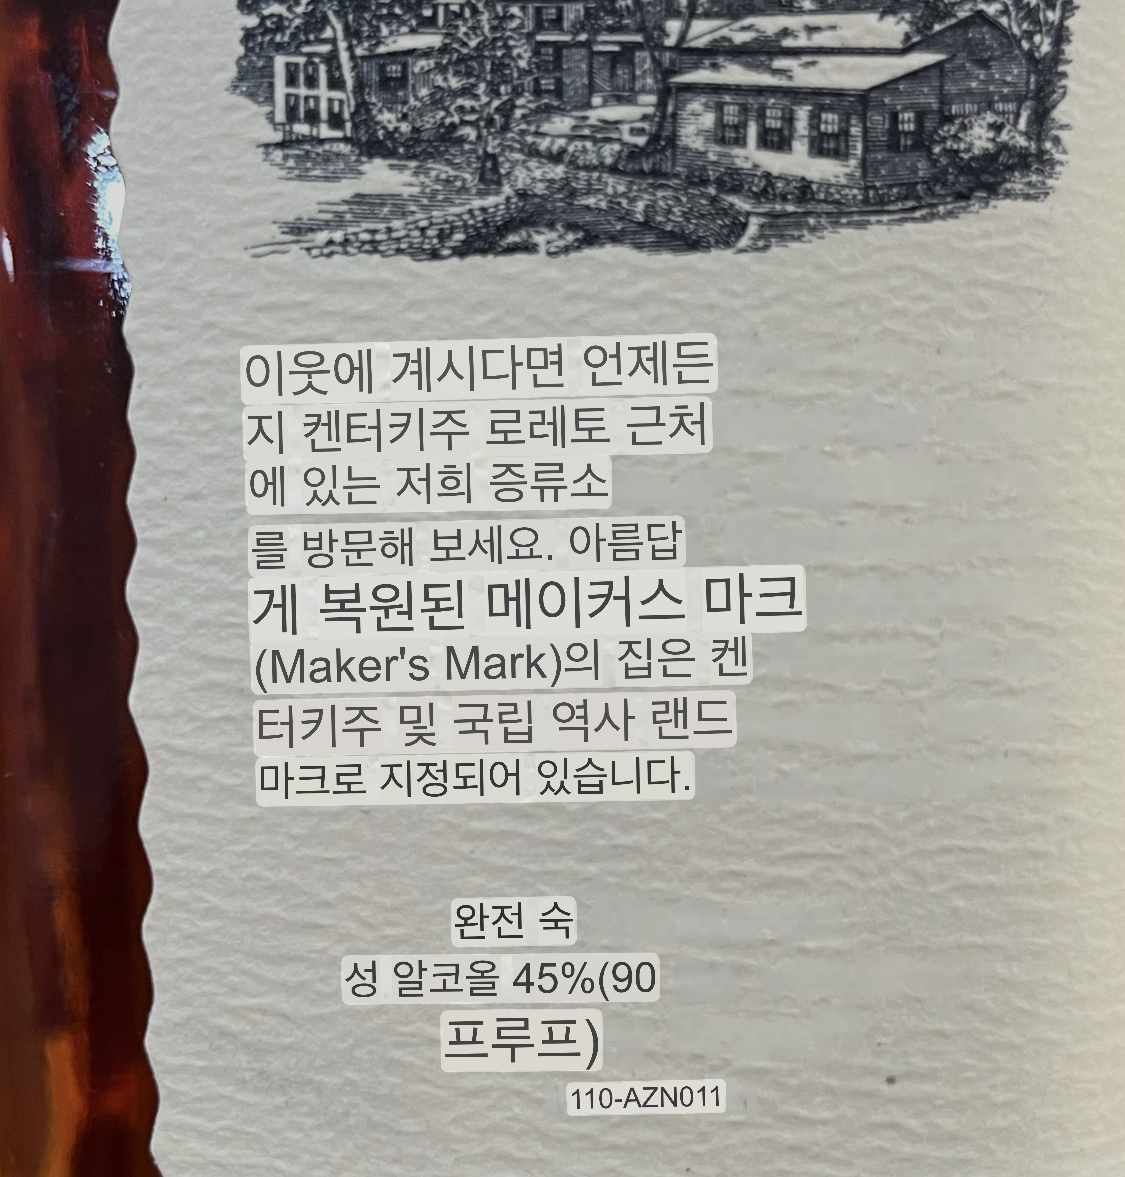 이웃에 계시다면 언제든
지 켄터키주 로레토 근처
에 있는 저희 증류소
를 방문해 보세요. 아름답
게 복원된 메이커스 마크
(Maker's Mark)의 집은 켄
터키주 및 국립 역사 랜드
마크로 지정되어 있습니다.
완전 숙
성 알코올 45%(90
프루프)
110-AZN011